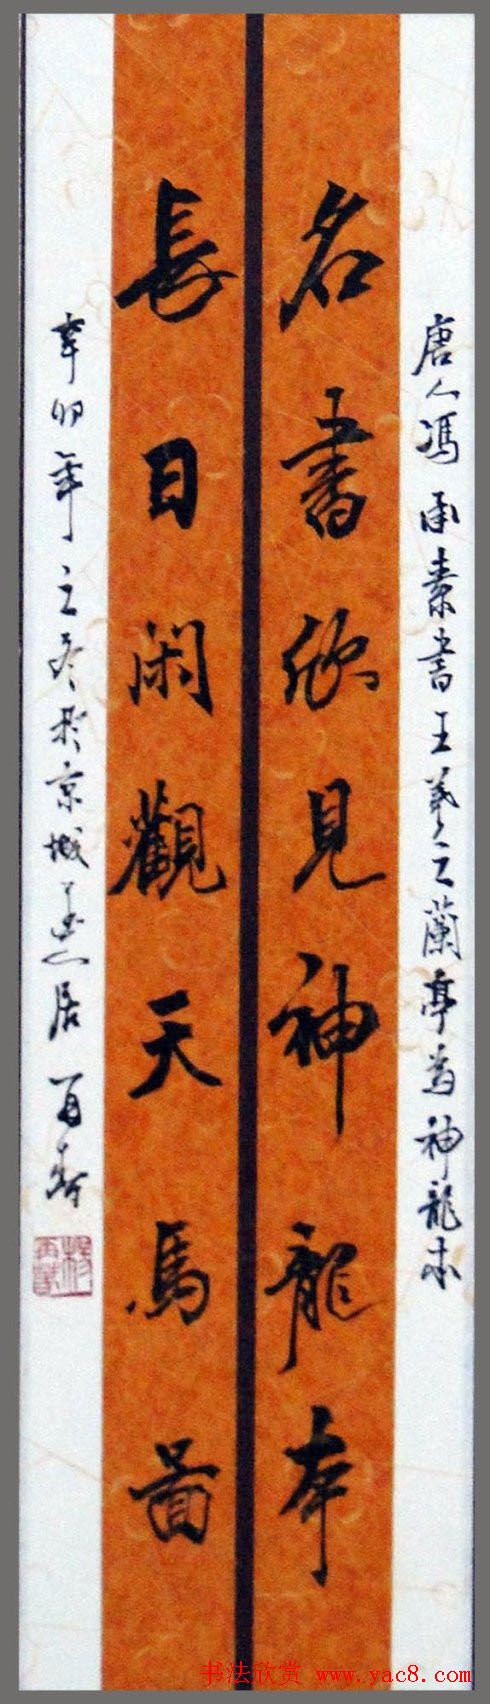 唐人馮承素書王羲之蘭亭為神龍本
名書欣見神龍本
長日闲觀天馬圖
辛卯年之冬於京城居 再春
书法欣赏 www.yac8.com